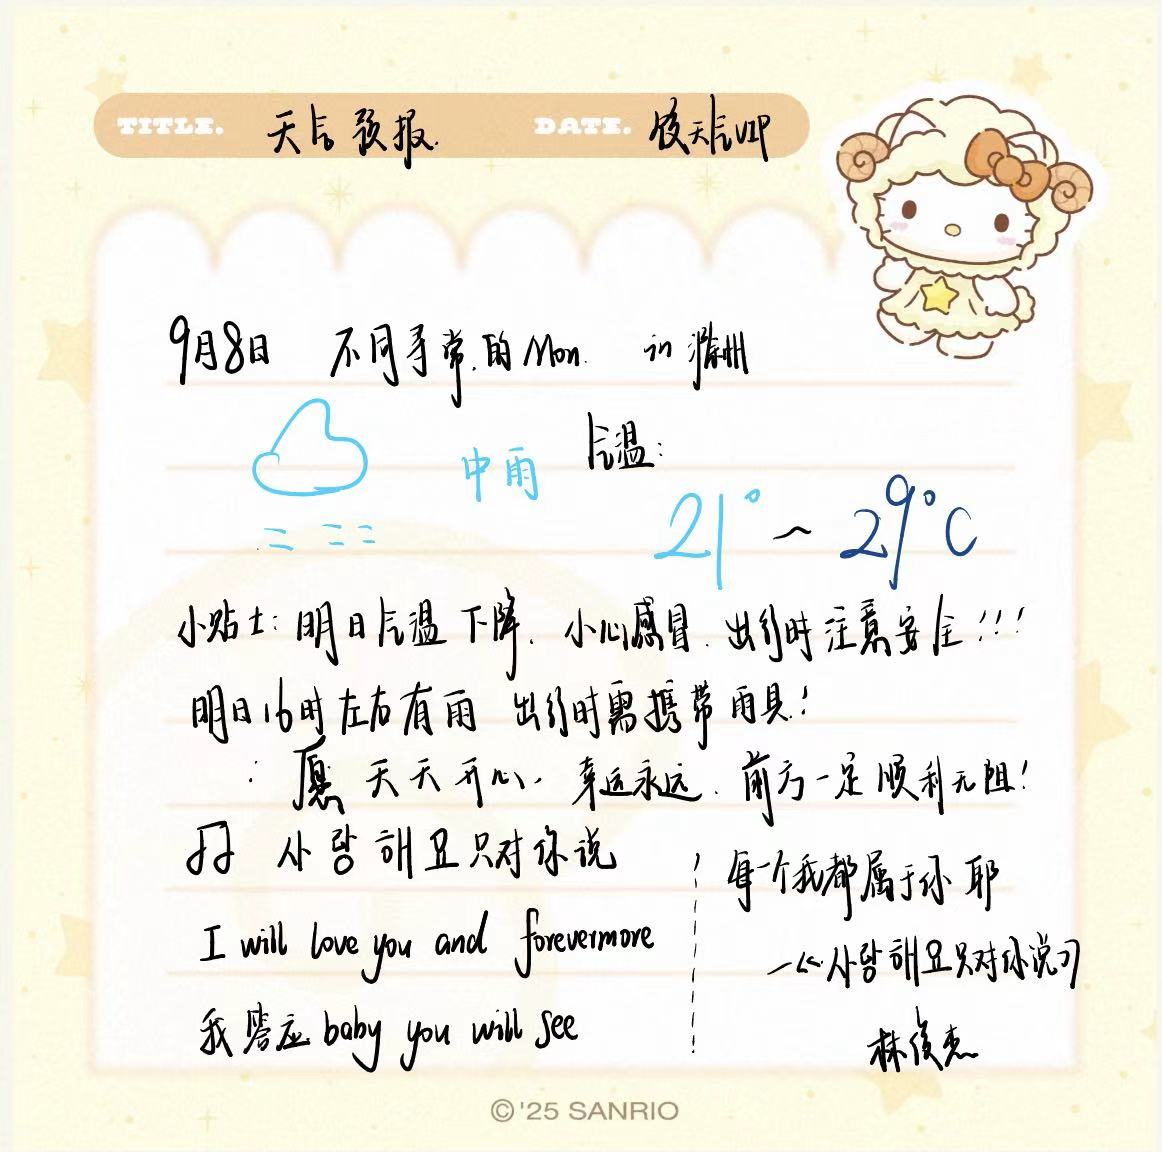 TITLE. 天气预报. DATE. 俊天气VIP
9月8日 不同寻常的Mon. in 滁州
中雨 气温:
21° ~ 29°C
小贴士: 明日气温下降. 小心感冒. 出行时注意安全!!!
明日16时左右有雨 出行时需携带雨具!
愿 天天开心. 幸运永远. 前方一定顺利无阻!
♫ 사랑해요只对你说
I will love you and forevermore
我答应 baby you will see
每一个我都属于你 耶
—《사랑해요只对你说》
林俊杰
©'25 SANRIO